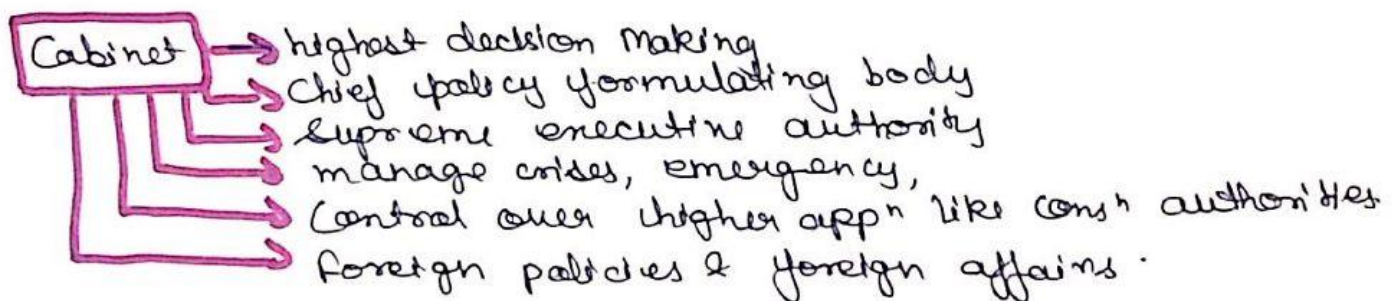 Cabinet → highest decision making
→ Chief policy formulating body
→ Supreme executive authority
→ manage crises, emergency,
→ Control over higher appⁿ like consⁿ authorities.
→ Foreign policies & foreign affairs.